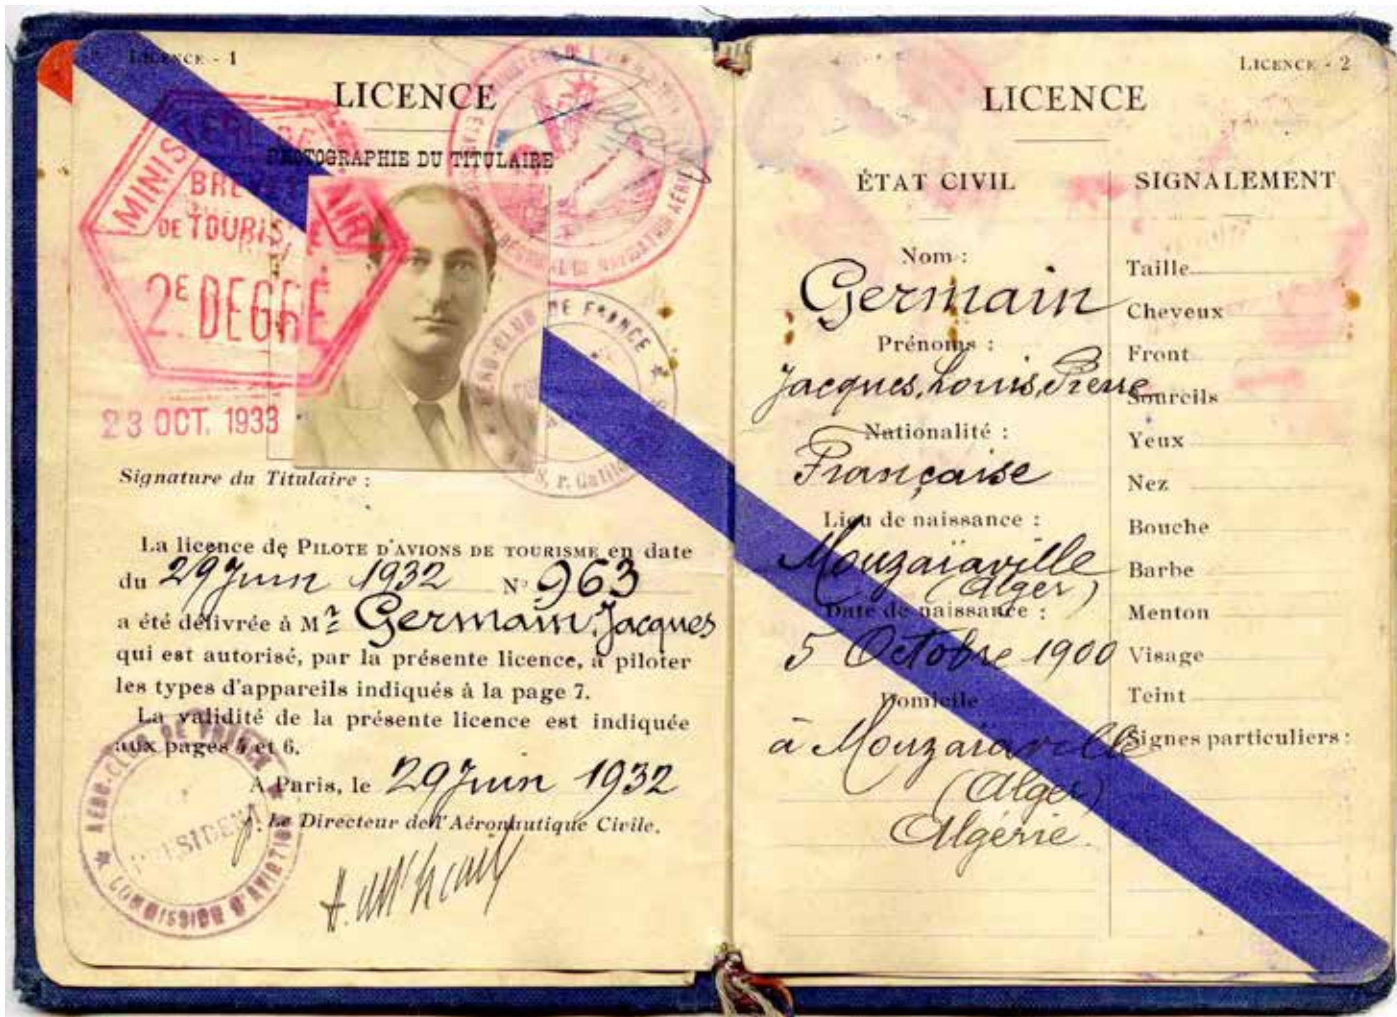 LICENCE - 1
LICENCE
PHOTOGRAPHIE DU TITULAIRE
MINISTÈRE DE L'AIR
BREVET
DE TOURISME
2E DEGRÉ
23 OCT. 1933
NAVIGATION AÉRIENNE
AÉRO-CLUB DE FRANCE
Signature du Titulaire :
La licence de PILOTE D'AVIONS DE TOURISME en date
du 29 Juin 1932 N° 963
a été délivrée à Mr Germain, Jacques
qui est autorisé, par la présente licence, à piloter
les types d'appareils indiqués à la page 7.
La validité de la présente licence est indiquée
aux pages 5 et 6.
A Paris, le 29 Juin 1932
p. Le Directeur de l'Aéronautique Civile.
AÉRO-CLUB DE FRANCE
PRÉSIDENT
COMMISSION D'AVIATION
LICENCE - 2
LICENCE
ÉTAT CIVIL
Nom :
Germain
Prénoms :
Jacques, Louis, Pierre
Nationalité :
Française
Lieu de naissance :
Mouzaïaville
(Alger)
Date de naissance :
5 Octobre 1900
Domicile
à Mouzaïaville
(Alger)
Algérie.
SIGNALEMENT
Taille
Cheveux
Front
Sourcils
Yeux
Nez
Bouche
Barbe
Menton
Visage
Teint
Signes particuliers :